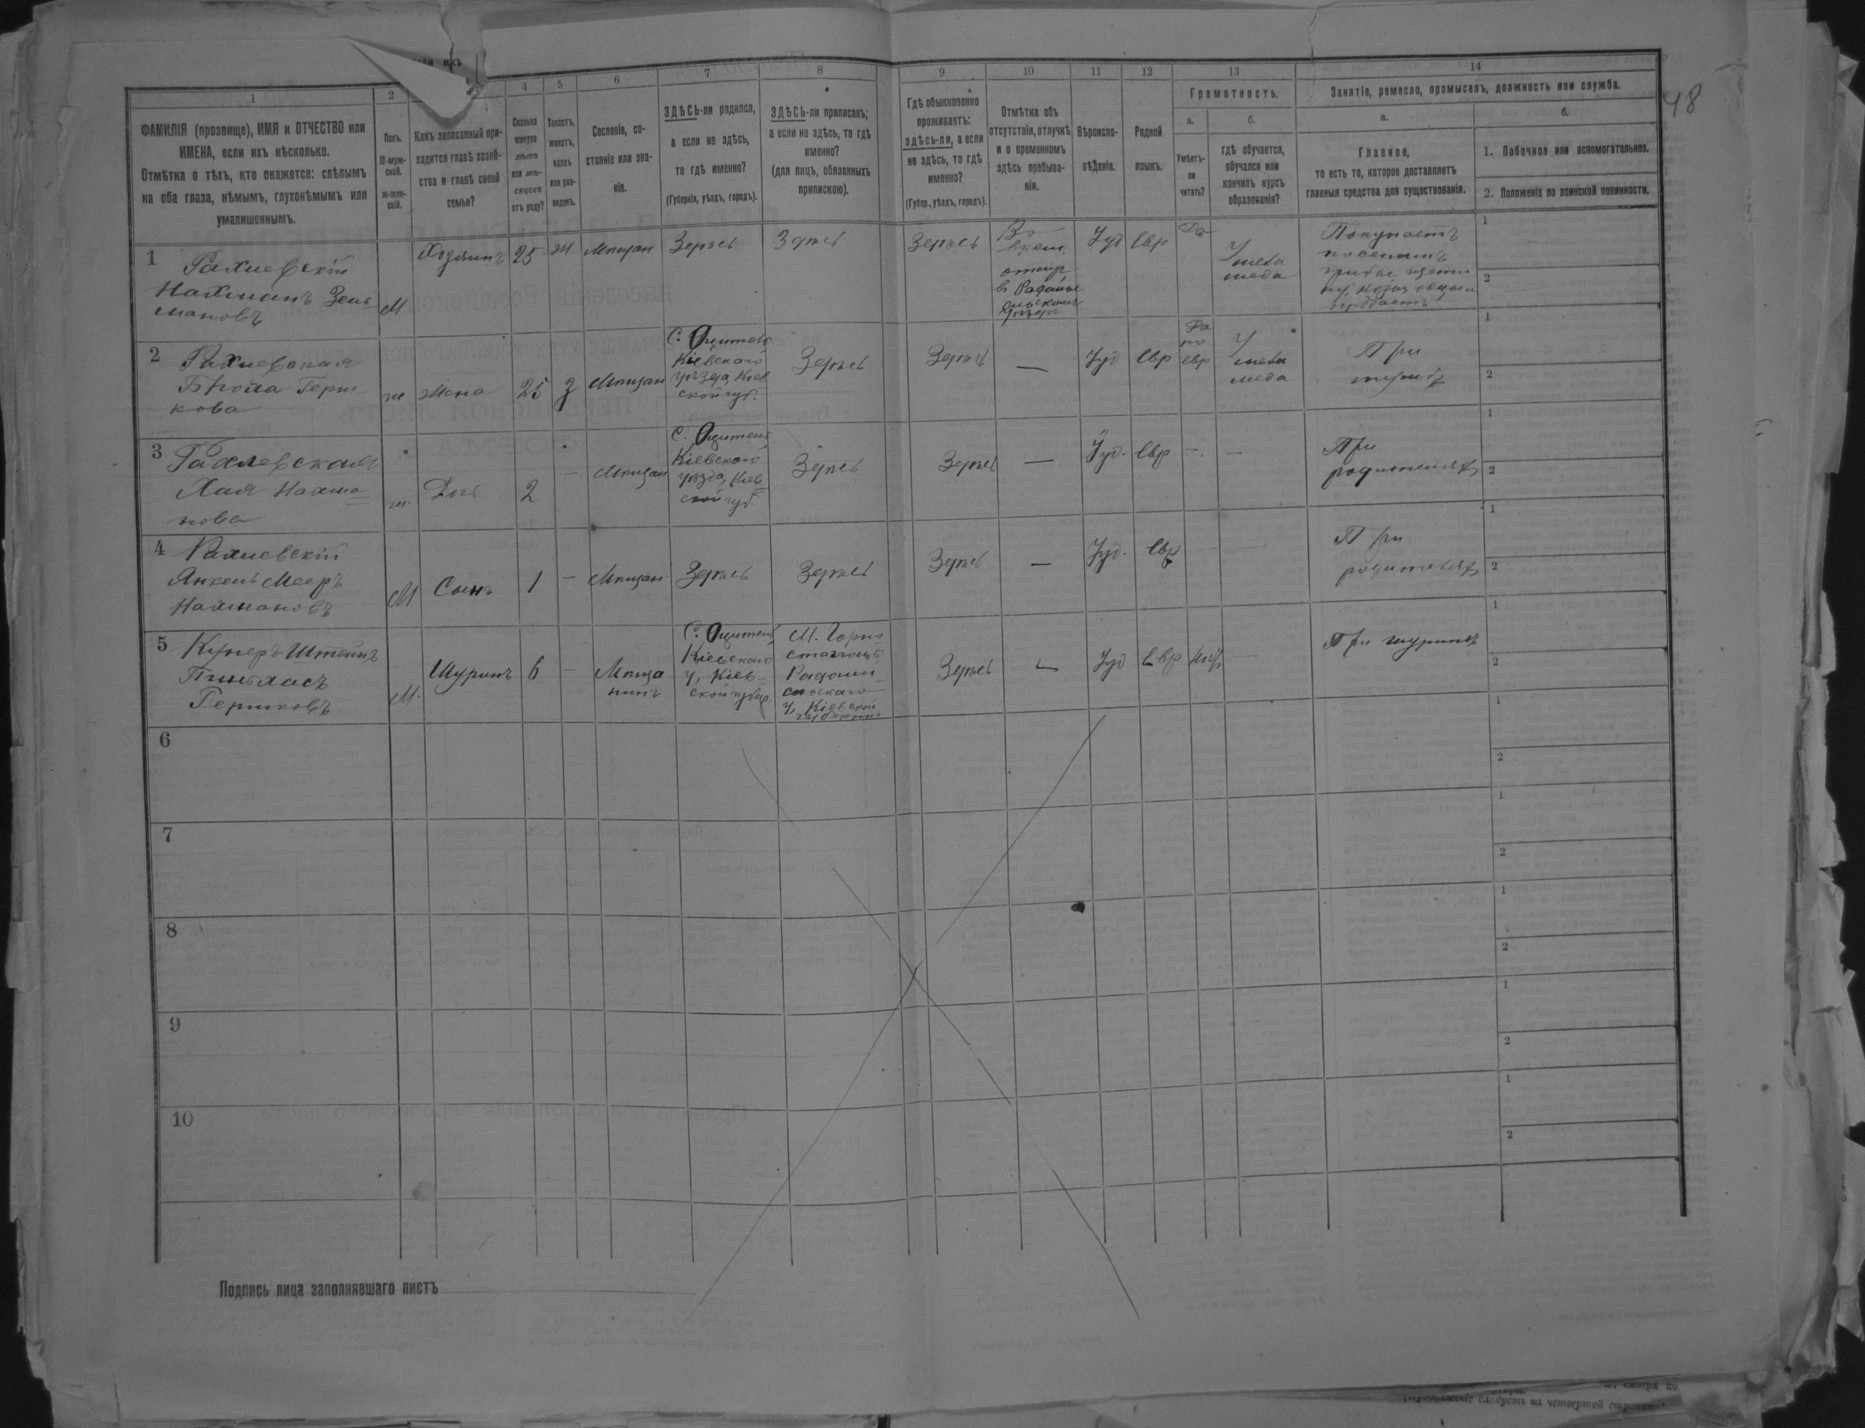 1
2
4
5
6
7
8
9
10
11
12
13
14
48
ФАМИЛІЯ (прозвище), ИМЯ и ОТЧЕСТВО или
ИМЕНА, если ихъ нѣсколько.
Отмѣтка о тѣхъ, кто окажется: слѣпымъ
на оба глаза, нѣмымъ, глухонѣмымъ или
умалишеннымъ.
Полъ.
М-муж-
ской.
Ж-жен-
скій.
Какъ записанный при-
ходится главѣ хозяй-
ства и главѣ своей
семьи?
Сколько
минуло
лѣтъ
или мѣ-
сяцевъ
отъ роду?
Холостъ,
женатъ,
вдовъ
или раз-
веденъ.
Сословіе, со-
стояніе или зва-
ніе.
ЗДѢСЬ-ли родился,
а если не здѣсь,
то гдѣ именно?
(Губернія, уѣздъ, городъ).
ЗДѢСЬ-ли приписанъ;
а если не здѣсь, то гдѣ
именно?
(для лицъ, обязанныхъ
припискою).
Гдѣ обыкновенно
проживаетъ:
здѣсь-ли, а если
не здѣсь, то гдѣ
именно?
(Губер., уѣздъ, городъ).
Отмѣтка объ
отсутствіи, отлучкѣ
и о временномъ
здѣсь пребыва-
ніи.
Вѣроиспо-
вѣданіе.
Родной
языкъ.
Грамотность.
а.
Умѣетъ-
ли
читать?
б.
гдѣ обучается,
обучался или
кончилъ курсъ
образованія?
Занятіе, ремесло, промыселъ, должность или служба.
а.
Главное,
то есть то, которое доставляетъ
главныя средства для существованія.
б.
1. Побочное или вспомогательное.
2. Положеніе по воинской повинности.
1
Рахлевскій
Нахманъ Зель-
мановъ
М
Хозяинъ
25
ж
Мѣщан
Здѣсь
Здѣсь
Здѣсь
Во
врем.
в Радомы
Іуд
Евр
Да
У
мела
меда
Покупаетъ
1
2
2
Рахлевская
Герш-
кова
ж
Жена
25
з
Мѣщан
Кіевскаго
уѣзда, Кіев
ской губ.
Здѣсь
Здѣсь
—
Іуд
Евр
Да
по
евр
У
мела
меда
При
мужѣ
1
2
3
Рахлевская
Хая Нахма-
нова
ж
Дочь
2
—
Мѣщан
Кіевскаго
уѣзда, Кіев
ской губ.
Здѣсь
Здѣсь
—
Іуд.
Евр
—
—
При
родителяхъ
1
2
4
Рахлевскій
Янкель Мееръ
Нахмановъ
М
Сынъ
1
—
Мѣщан
Здѣсь
Здѣсь
Здѣсь
—
Іуд.
Евр
—
—
При
родителяхъ
1
2
5
Куперъ-Штейнъ
Пиньхасъ
Гершковъ
М
Шуринъ
6
—
Мѣща
нинъ
Кіевскаго
у, Кіев-
ской губер.
М. Горно-
стайполь
Радомы-
сльскаго
у, Кіевской
губерніи
Здѣсь
—
Іуд
Евр
нѣтъ
—
При шуринѣ
1
2
6
1
2
7
1
2
8
1
2
9
1
2
10
1
2
Подпись лица заполнявшаго листъ